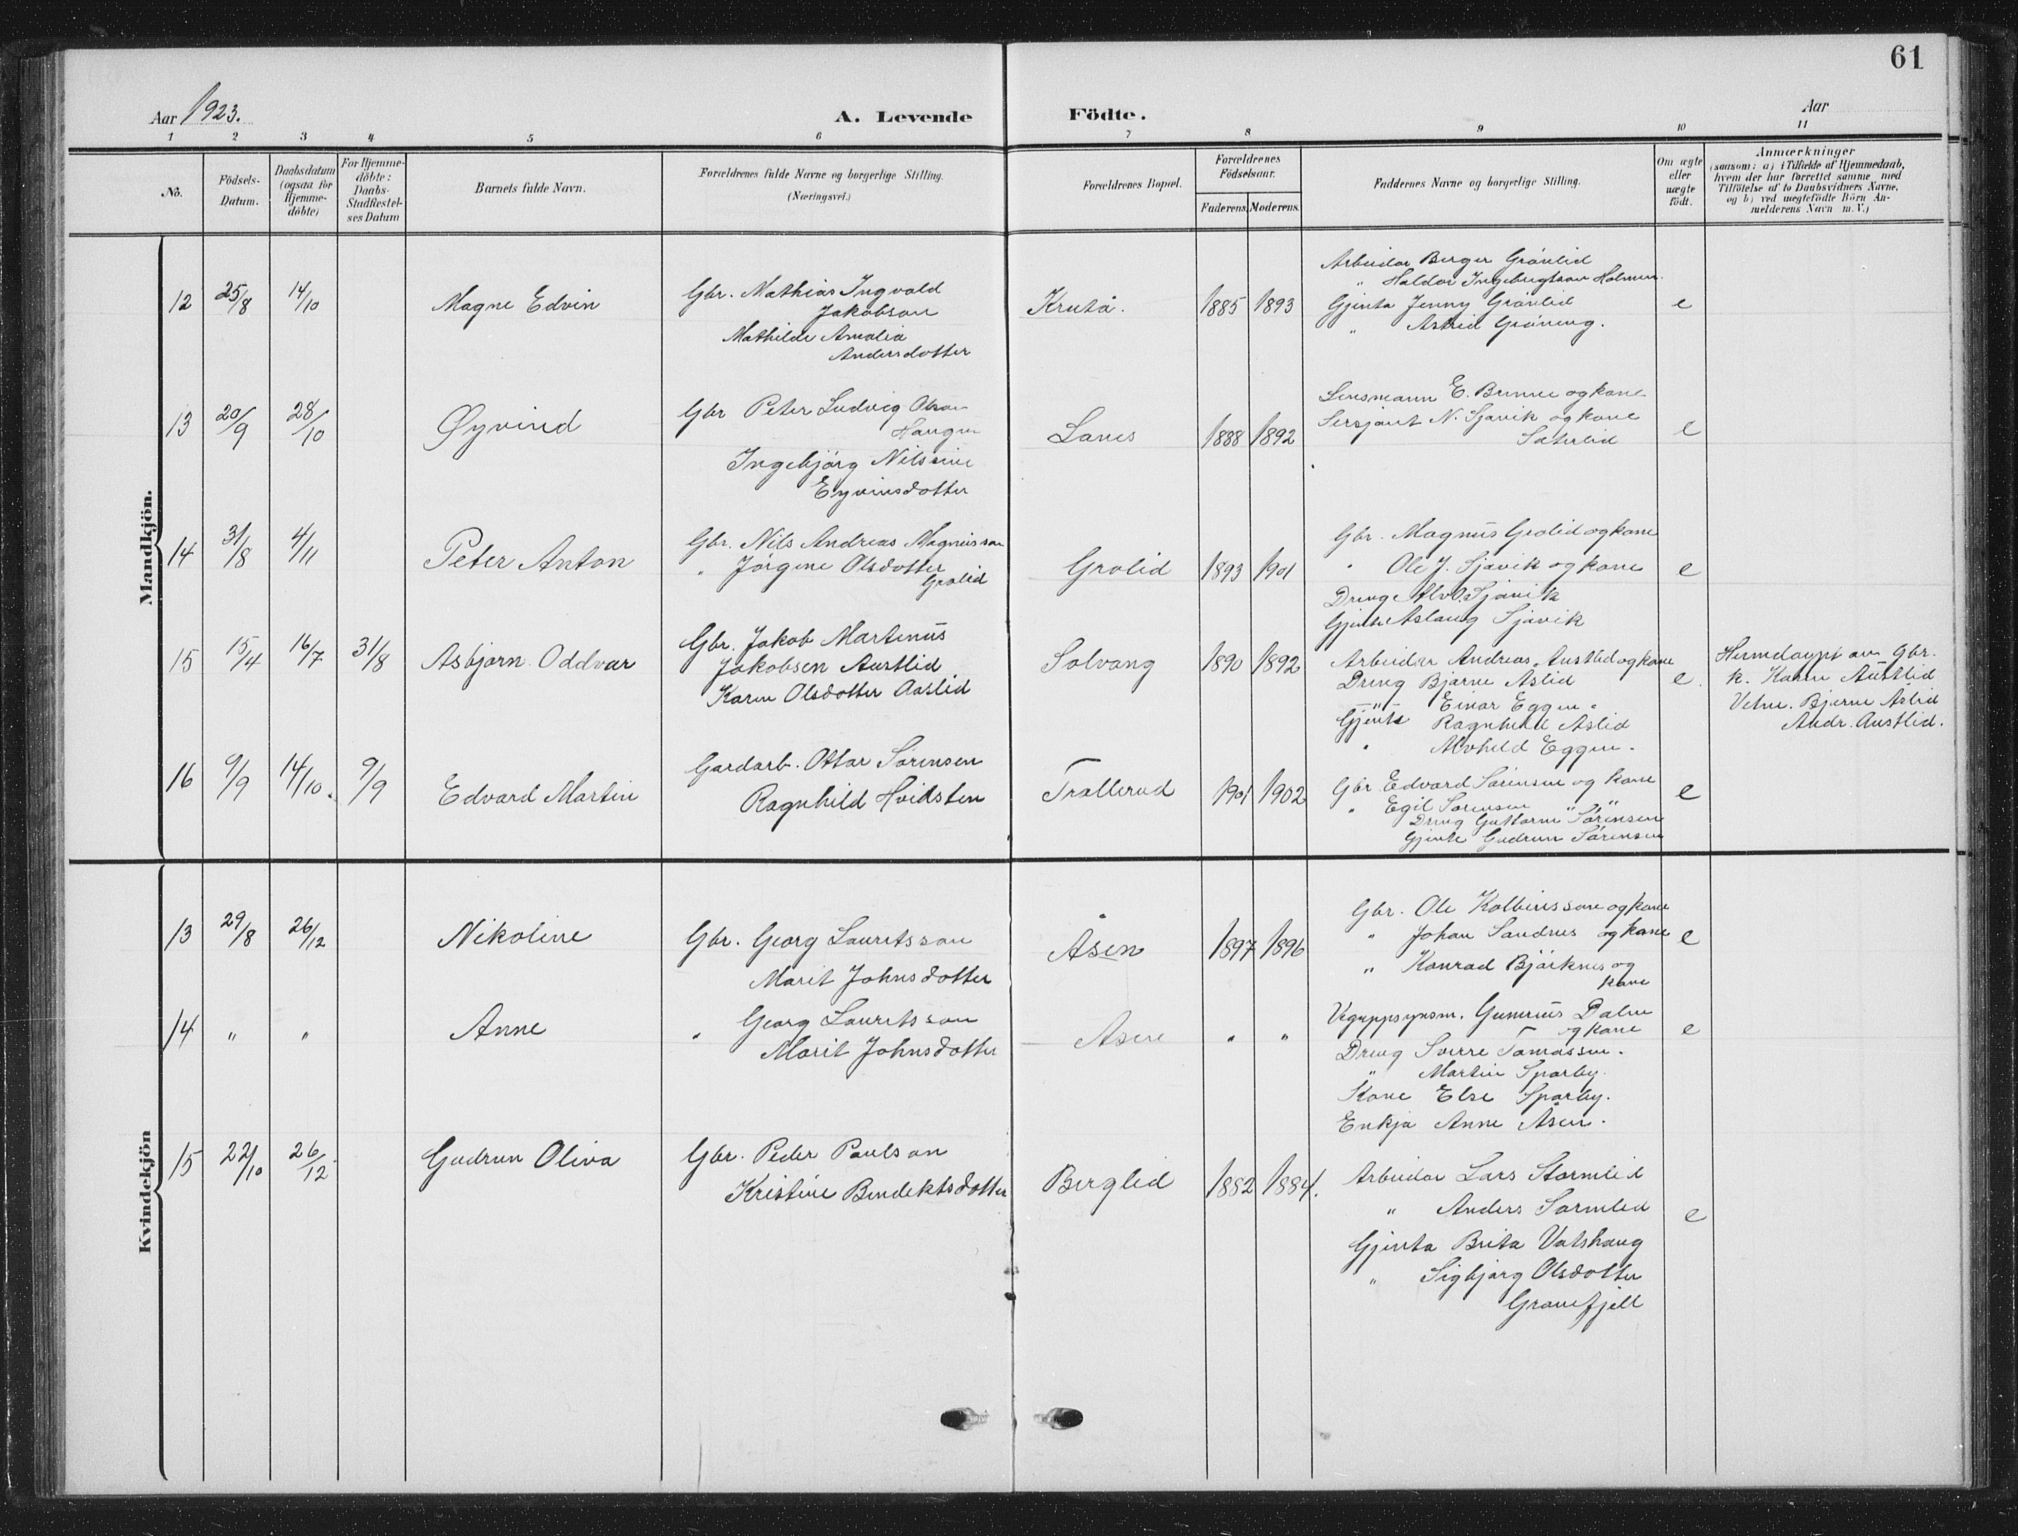 61
Aar 1923.
A. Levende Födte.
Aar
1 2 3 4 5 6 7 8 9 10 11
No.
Födsels-
Datum.
Daabsdatum
(ogsaa for
Hjemme-
döbte)
For Hjemme-
döbte:
Daabs-
Stadfæstel-
ses Datum
Barnets fulde Navn.
Forældrenes fulde Navne og borgerlige Stilling.
(Næringsvei.)
Forældrenes Bopæl.
Forældrenes
Födselsaar.
Faderens. Moderens.
Faddernes Navne og borgerlige Stilling.
Om ægte
eller
uægte
födt.
Anmærkninger
(saasom: a) i Tilfælde af Hjemmedaab,
hvem der har forrettet samme, med
Tilföielse af to Daabsvidners Navne,
og b) ved uægtefödte Börn An-
melderens Navn m. V.)
Mandkjön.
12 25/8 14/10 Magne Edvin
Gbr. Mathias Ingvald
Jakobson
Mathilde Amalia
Andersdotter
Krutå. 1885 1893
Arbeidar Berger Grönlid
" Haldor Ingebrigtson Holmen.
Gjenta Jenny Grönlid
" Astrid Gröneng.
e
13 20/9 28/10 Øyvind
Gbr Peter Ludvig Olson
Haugen
Ingebjörg Nilsine
Eyvinsdotter
Lanes 1888 1892
Lensmann E. Brunee og kone
Sersjant N. Sjåvik og kone
Sæterlid
e
14 31/8 4/11 Peter Anton
Gbr. Nils Andreas Magnusson
" Jörgine Olsdotter
Grolid
Grolid 1893 1901
Gbr. Magnus Grolid og kone
" Ole J. Sjåvik og kone
Dreng Alv O. Sjåvik
Gjente Aslaug Sjåvik
e
15 15/4 16/7 31/8 Asbjørn Oddvar
Gbr. Jakob Martinus
Jakobsen Austlid
Karen Olsdotter Aaslid
Solvang 1890 1892
Arbeider Andreas Austlid og kone
Dreng Bjarne Aslid
" Einar Eggen.
Gjente Ragnhild Aslid
" Alvhild Eggen.
e.
Heimdøypt av gbr.
k. Karen Austlid
Vitne. Bjarne Aslid
Andr. Austlid.
16 9/9 14/10. 9/9 Edvard Martin
Gardarb. Ottar Sörensen
Ragnhild Hvidsten
Trallerud 1901 1902
Gbr Edvard Sörensen og kone
" Egil Sörensen " "
Dreng Guttorm Sörensen
Gjente Gudrun Sörensen
e
Kvindekjön
13 29/8 26/12 Nikoline
Gbr. Georg Lauritsson
Marit Johnsdotter
Åsen 1897 1896
Gbr. Ole Kolbeinsson og kone
" Johan Sandnes og kone
" Konrad Bjørknes og
kone
e
14 " " Anne
" Georg Lauritsson
Marit Johnsdotter
Åsen " "
Veguppsynsm. Gunerius Dalen
og kone
Dreng Sverre Tomassen.
" Martin Sparby.
Kone Else Sparby.
Enkja Anne Åsen.
e
15 22/10 26/12. Gudrun Oliva
Gbr. Peder Paulson
Kristine Bendektsdotter
Berglid 1882 1884.
Arbeidar Lars Stormlid
" Anders Sormlid
Gjenta Brita Vatshaug
" Sigbjørg Olsdotter
Granefjell
e